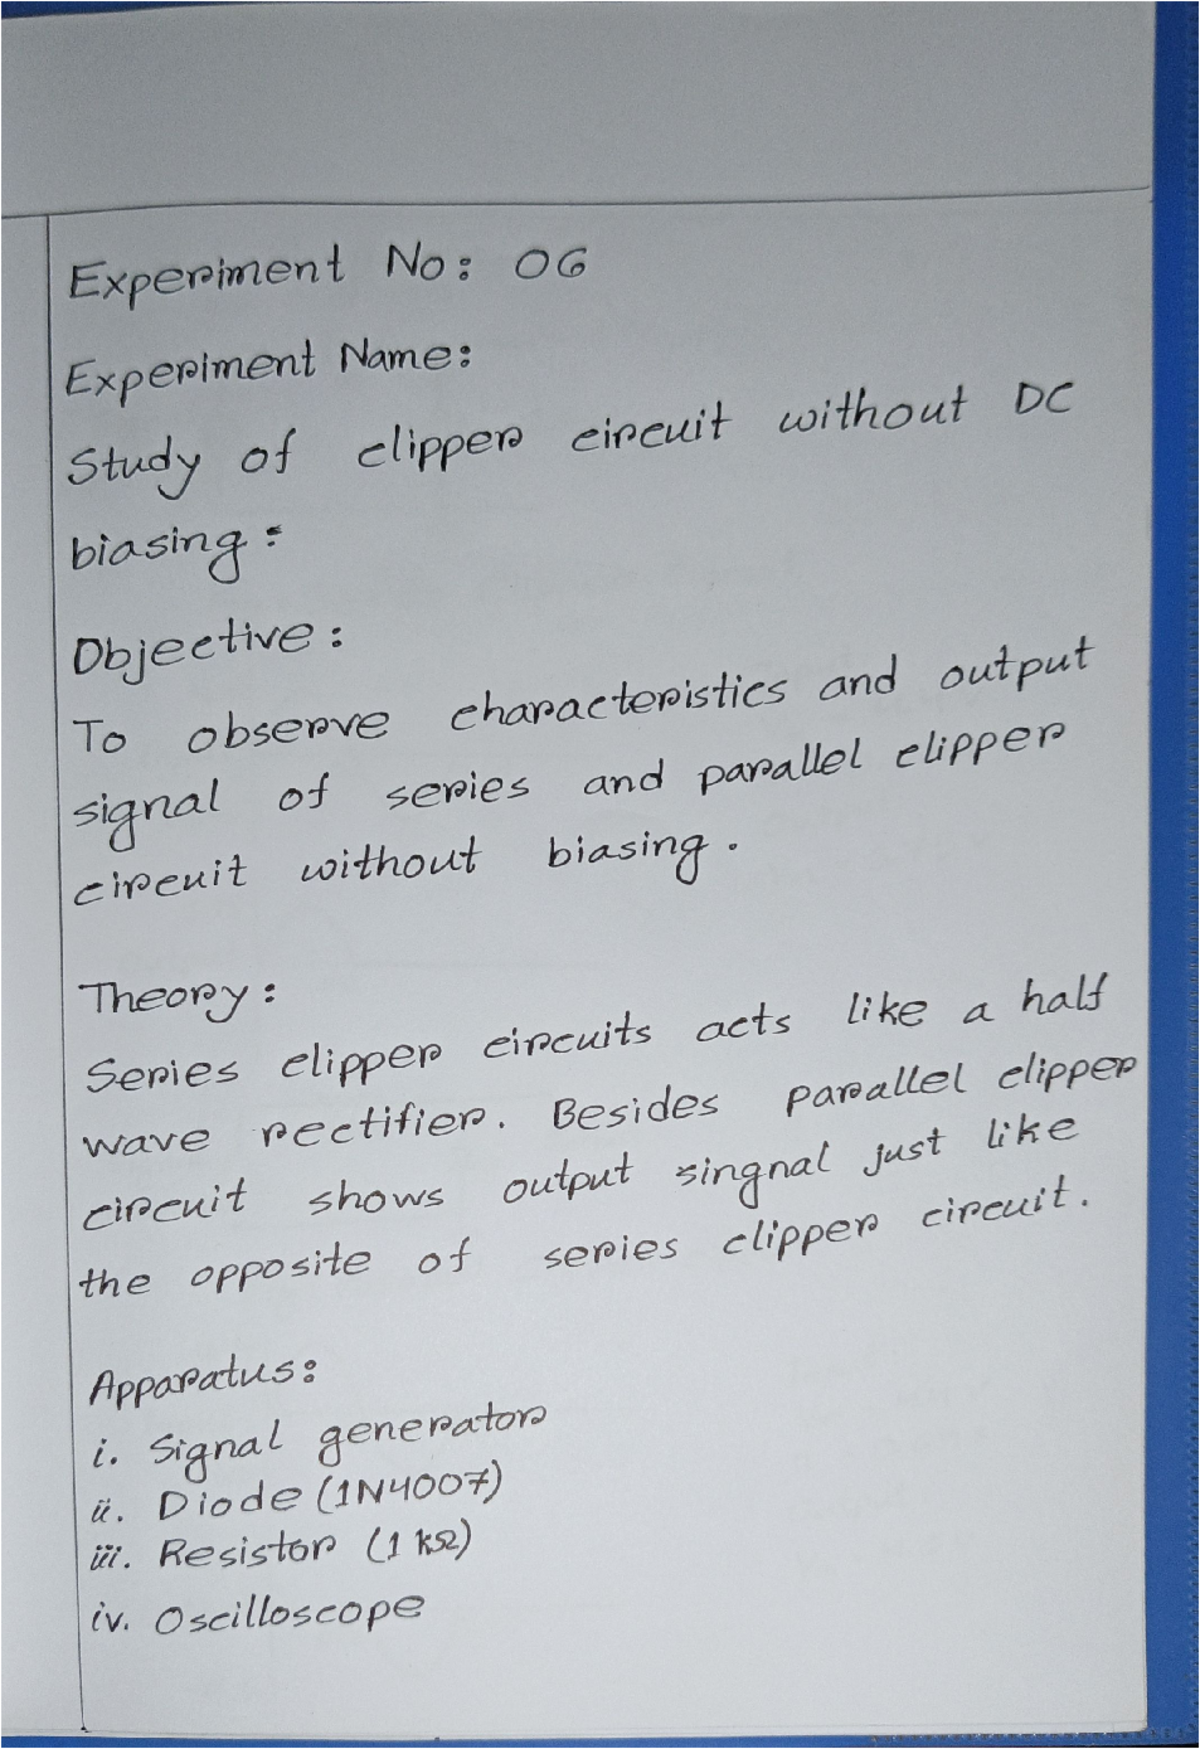 Experiment No: 06
Experiment Name:
Study of clipper circuit without DC
biasing:
Objective:
To observe characteristics and output
signal of series and parallel clipper
circuit without biasing.
Theory:
Series clipper circuits acts like a half
wave rectifier. Besides parallel clipper
circuit shows output singnal just like
the opposite of series clipper circuit.
Apparatus:
i. Signal generator
ii. Diode (1N4007)
iii. Resistor (1 kΩ)
iv. Oscilloscope